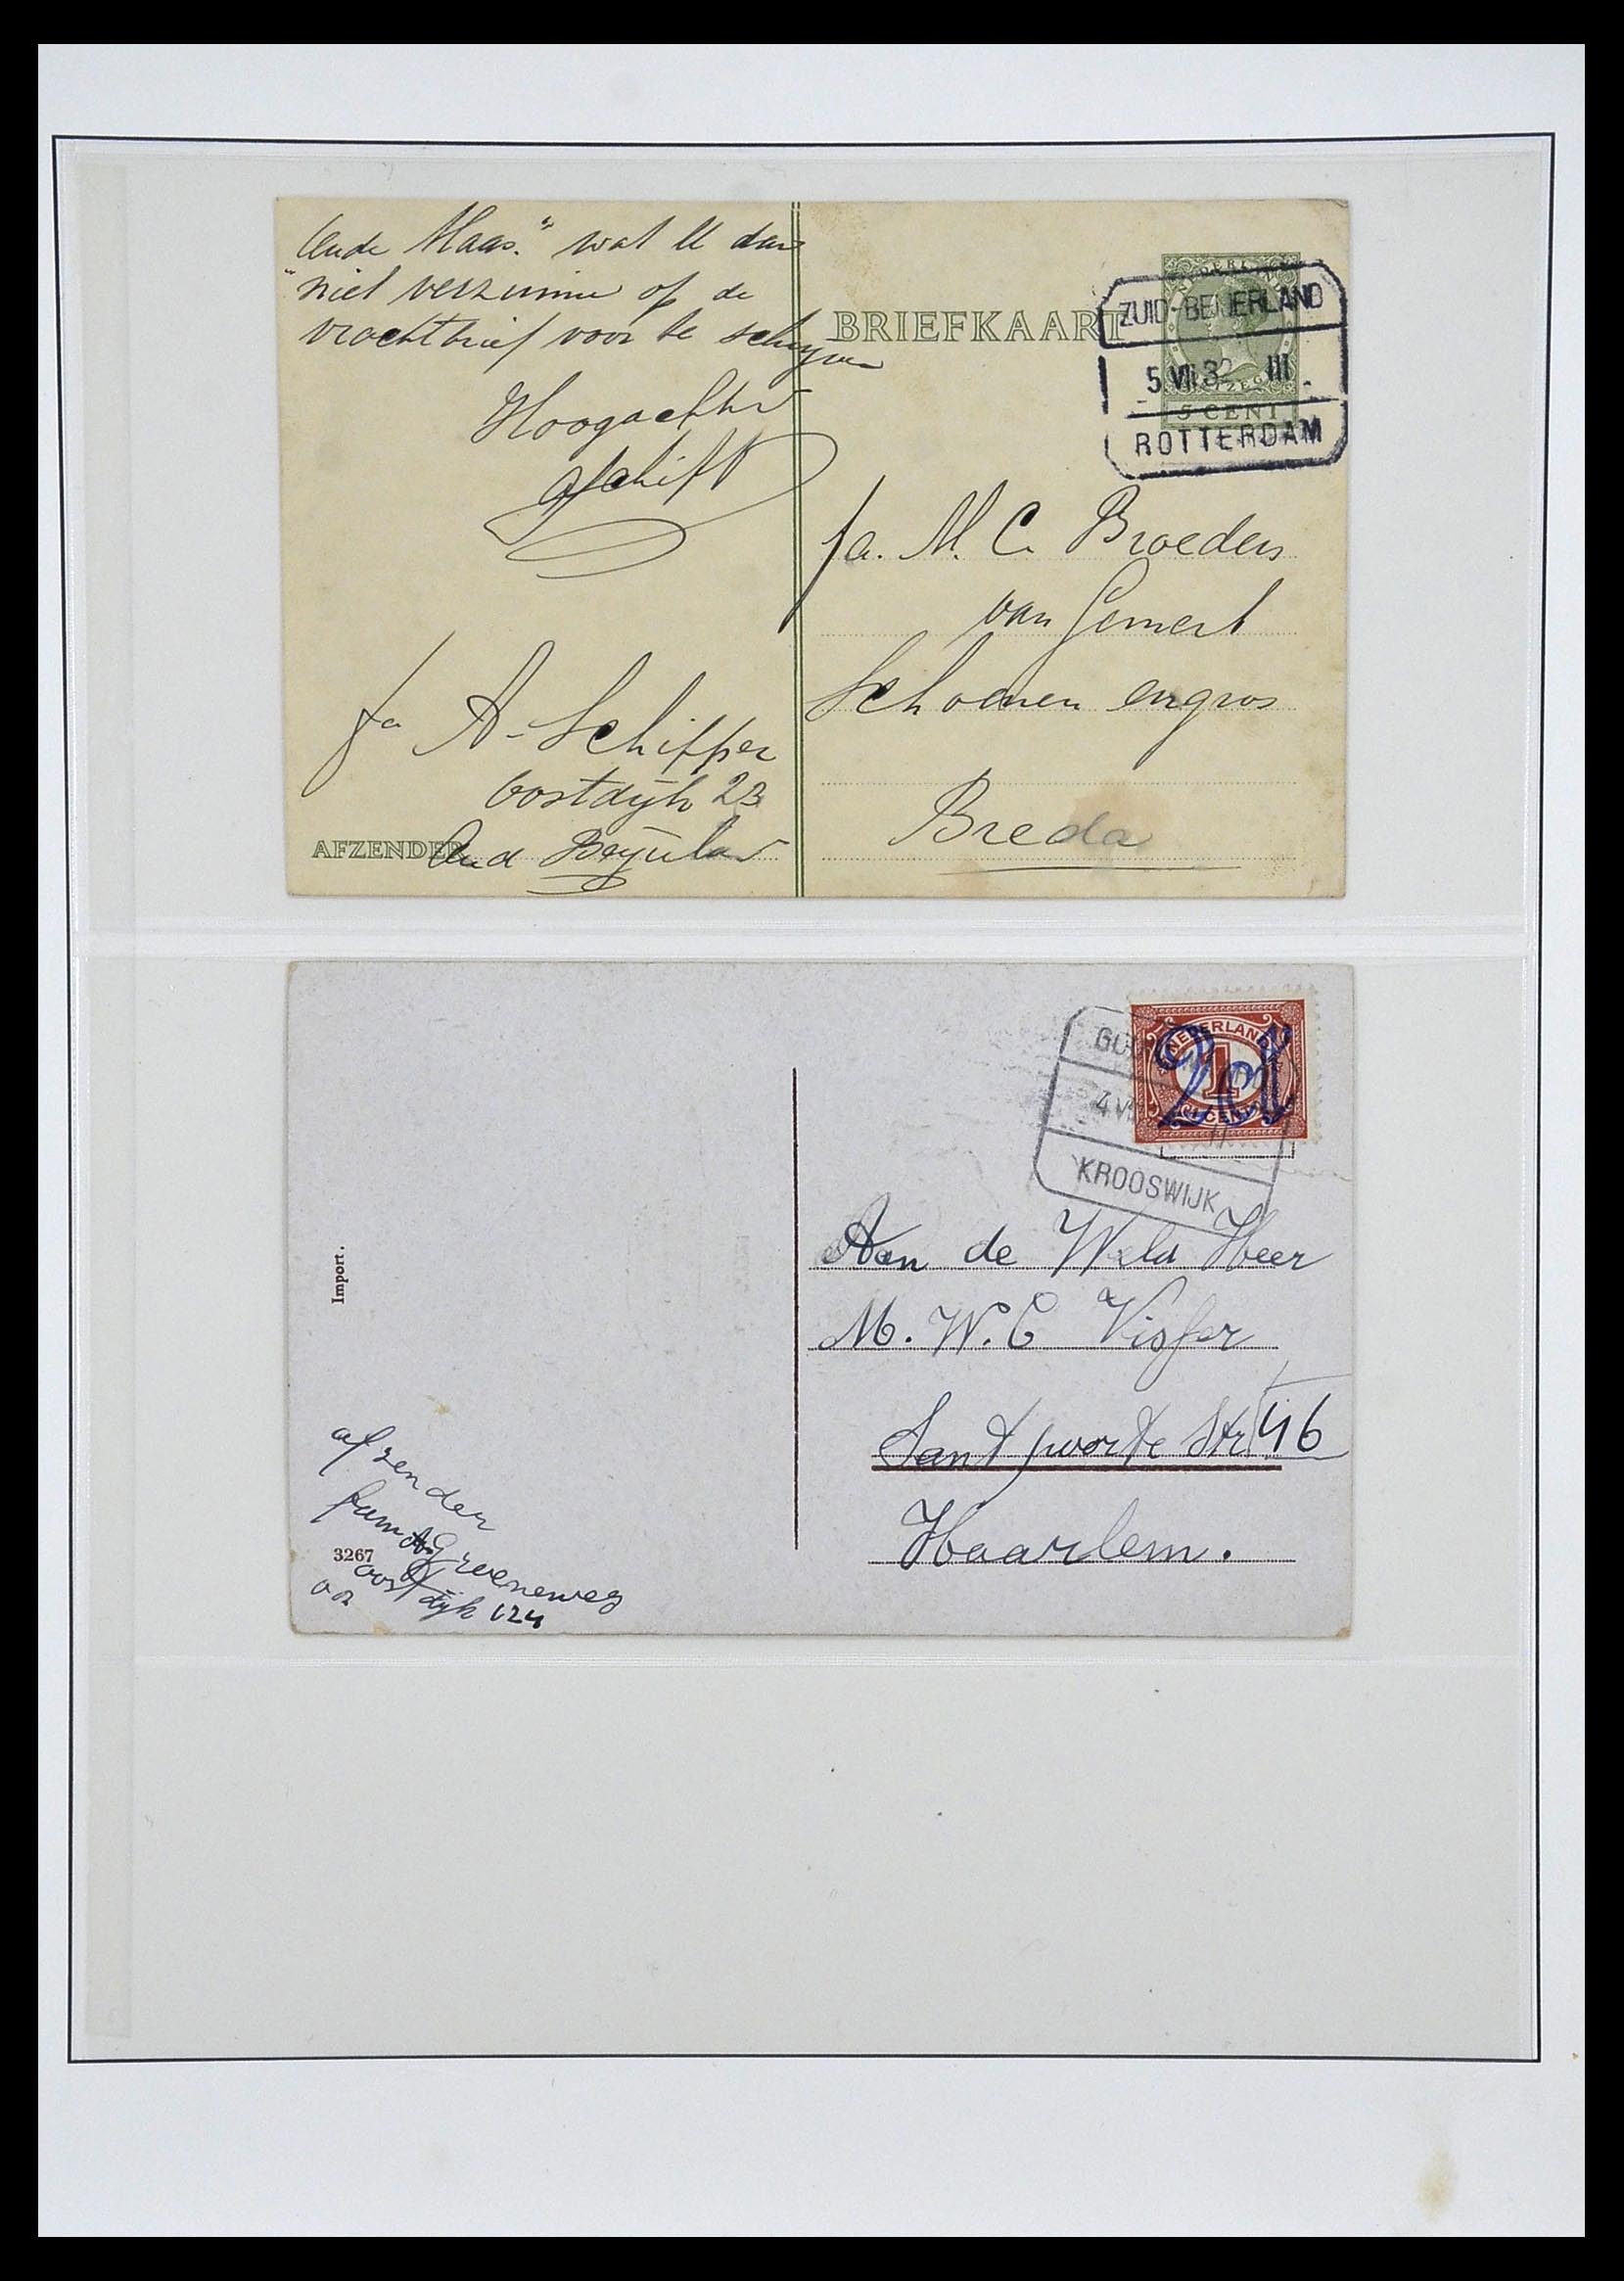 Oude Maas." wat U dan
"niet verzuime op de
vrachtbrief voor te schrijven
Hoogachtd
ASchiff
BRIEFKAART
NEDERLAND
ZUID-BEIJERLAND
5 VII 32 III
5 CENT
ROTTERDAM
fa. M. C. Broeders
van Gemert
Schoenen engros
Breda
fa A. Schipper
Oostdijk 23
AFZENDER
Oud Beijerland
NEDERLAND
1
CENT
2 ct
4 VI
KROOSWIJK
Import.
Aan de Weld Heer
M. W. C Visser
Santpoorte Str 46
Haarlem.
afzender
fam A. Groeneweg
3267
Oostdijk 124